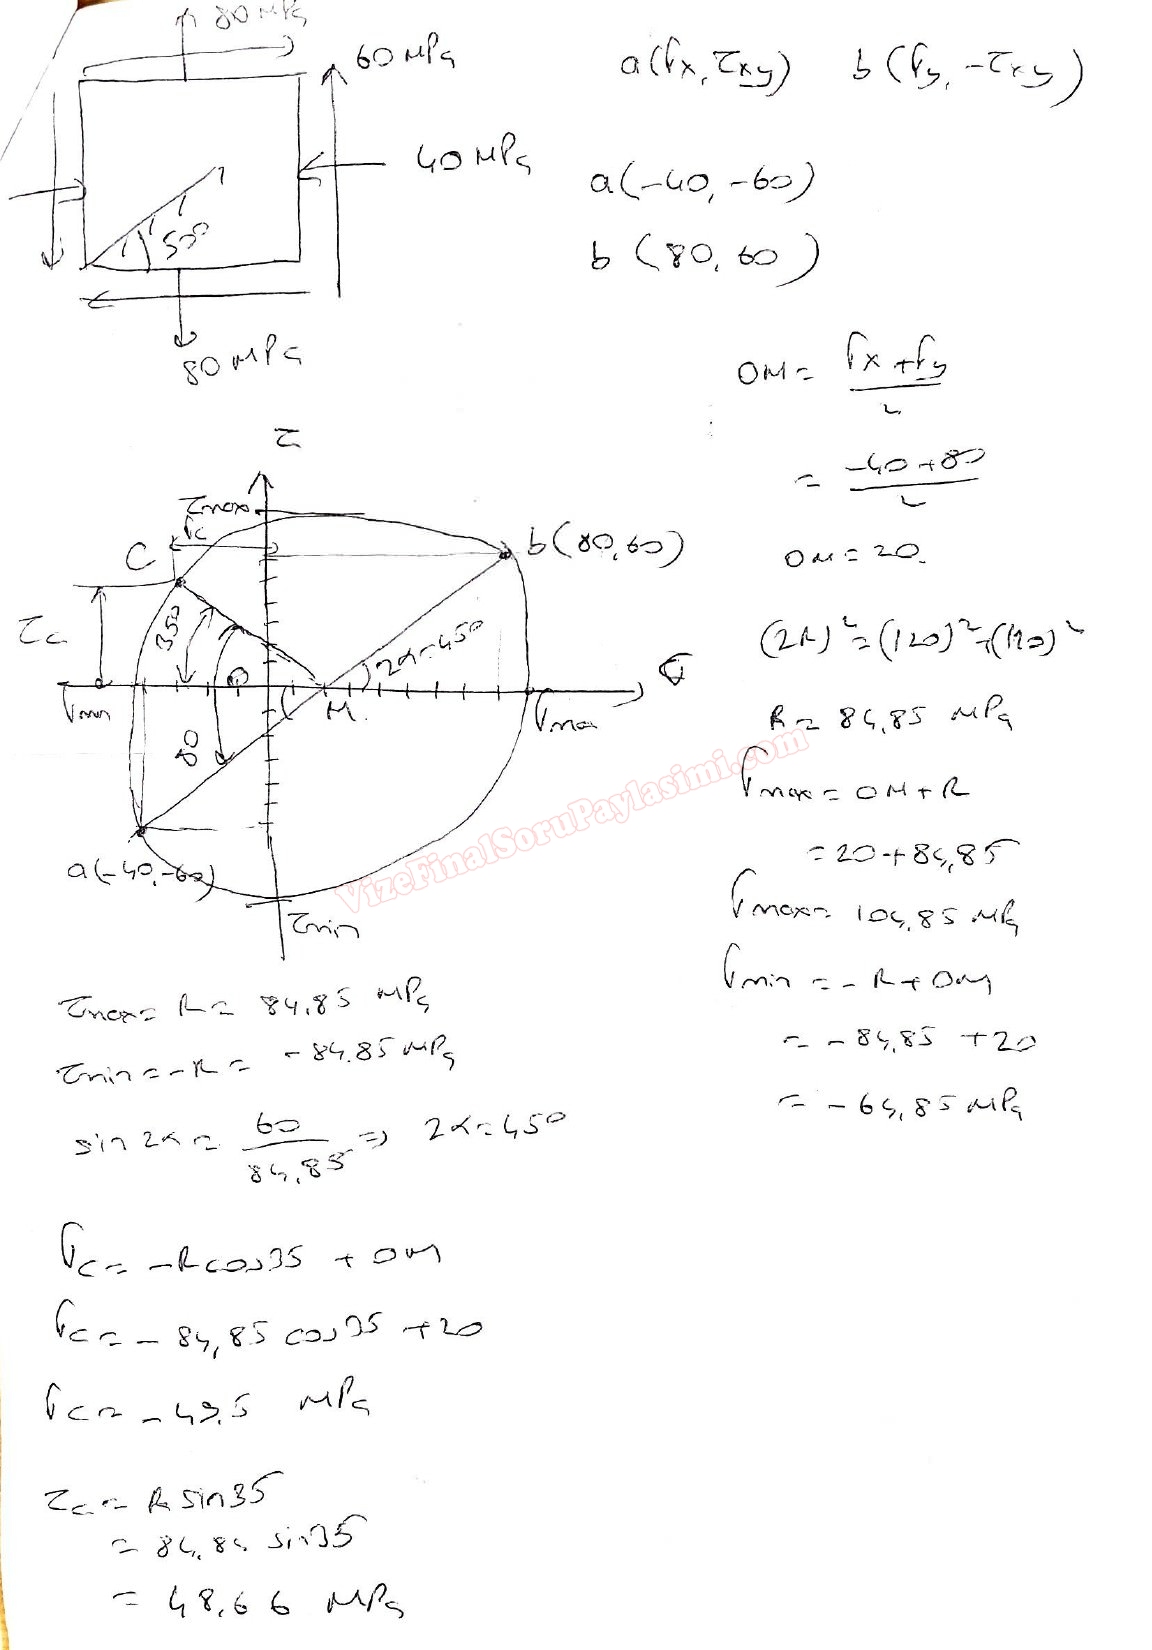 80 MPa
60 MPa
40 MPa
50°
80 MPa
a(σx, τxy) b(σy, -τxy)
a(-40, -60)
b (80, 60)
OM = σx + σy
2
= -40+80
2
OM = 20.
(2R)² = (120)² + (120)²
R = 84,85 MPa
σmax = OM + R
= 20+84,85
σmax = 104,85 MPa
σmin = -R + OM
= -84,85 + 20
= -64,85 MPa
τ
τmax
σc
C
b(80,60)
τc
35°
80
2α=45°
σ
σmin
M.
σmax
a(-40,-60)
τmin
VizeFinalSoruPaylasimi.com
τmax = R = 84,85 MPa
τmin = -R = -84.85 MPa
sin 2α = 60 / 84,85 => 2α = 45°
σc = -R cos35 + OM
σc = -84,85 cos35 +20
σc = -49.5 MPa
τc = R sin35
= 84.84 sin35
= 48.66 MPa